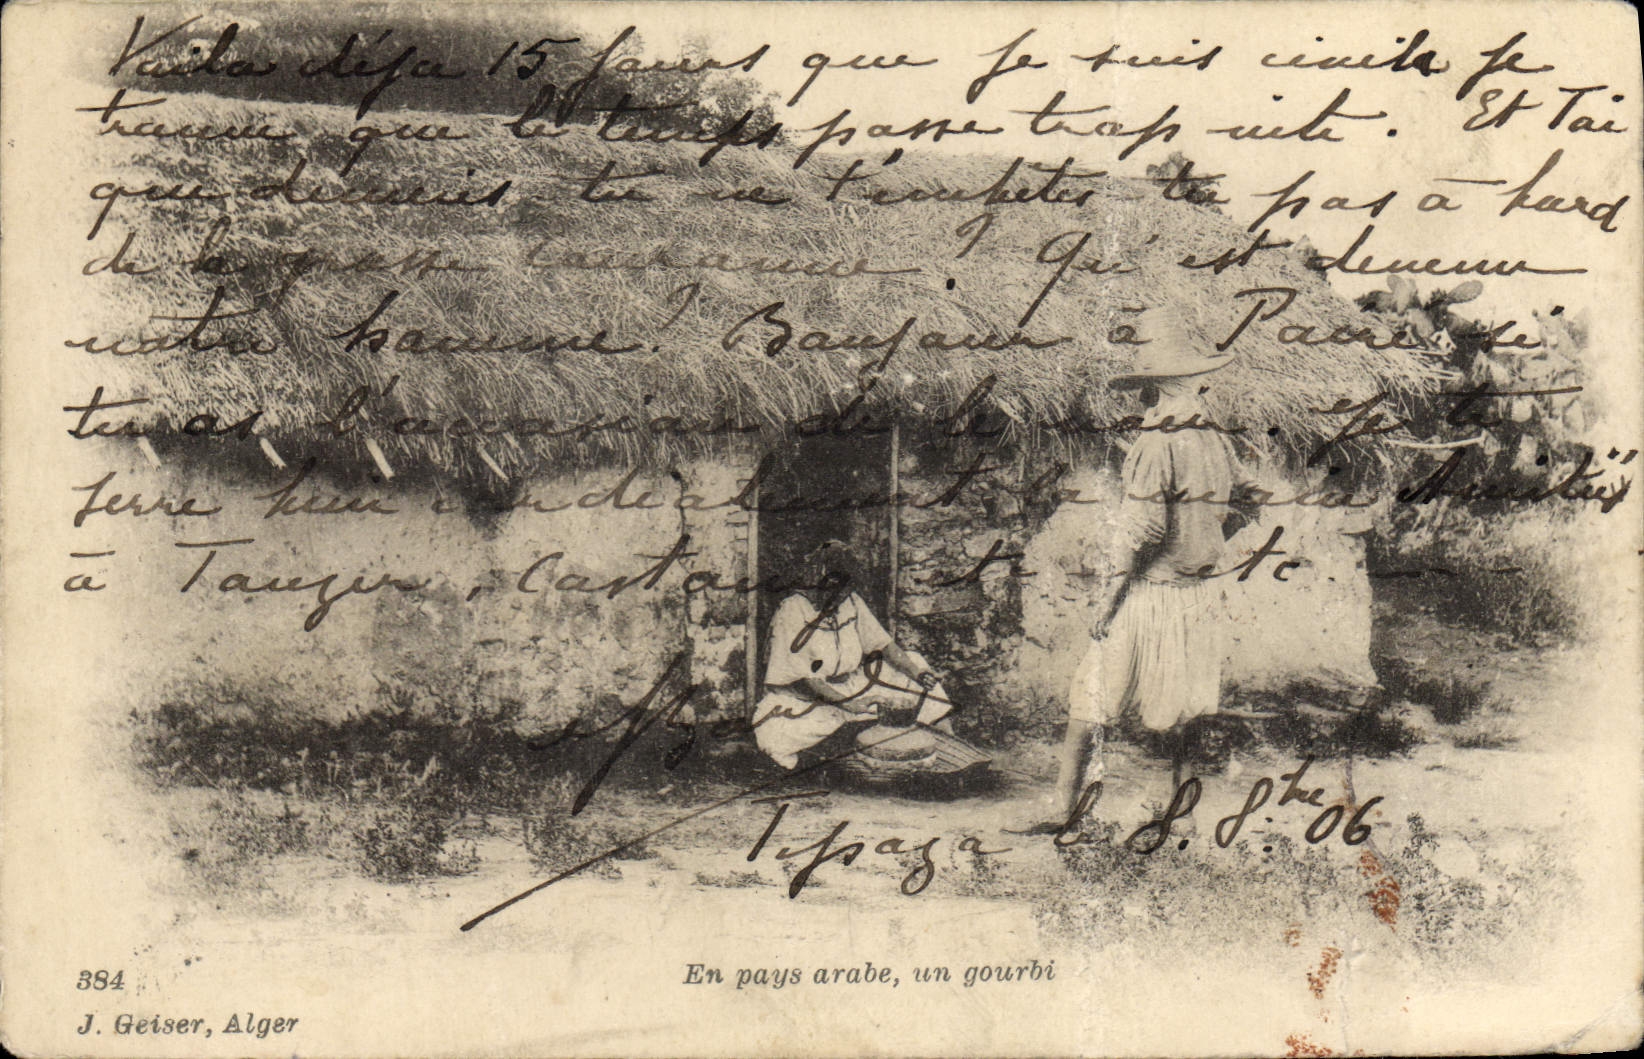 Voila déja 15 jours que je suis civile je
trouve que le temps passe trop vite. Et Toi
que deviens tu ne t'embêtes tu pas à bord
de la grosse ? Qu'est devenu
notre homme? Bonjour à si
tu as l'occasion de le voir. Je te
serre bien cordialement la main Amitiés
à Tanger, Castaing etc - etc. — —

Tipaza le 8. 8.bre 06
384
En pays arabe, un gourbi
J. Geiser, Alger